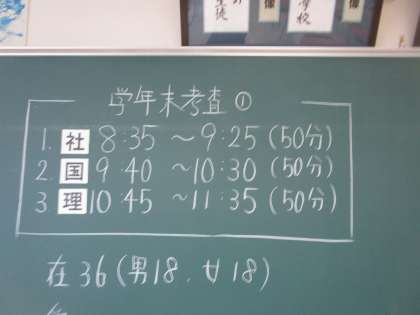 学年末考査①
1. 社 8:35 ～9:25 (50分)
2. 国 9:40 ～10:30 (50分)
3 理 10:45 ～11:35 (50分)
在36(男18、女18)